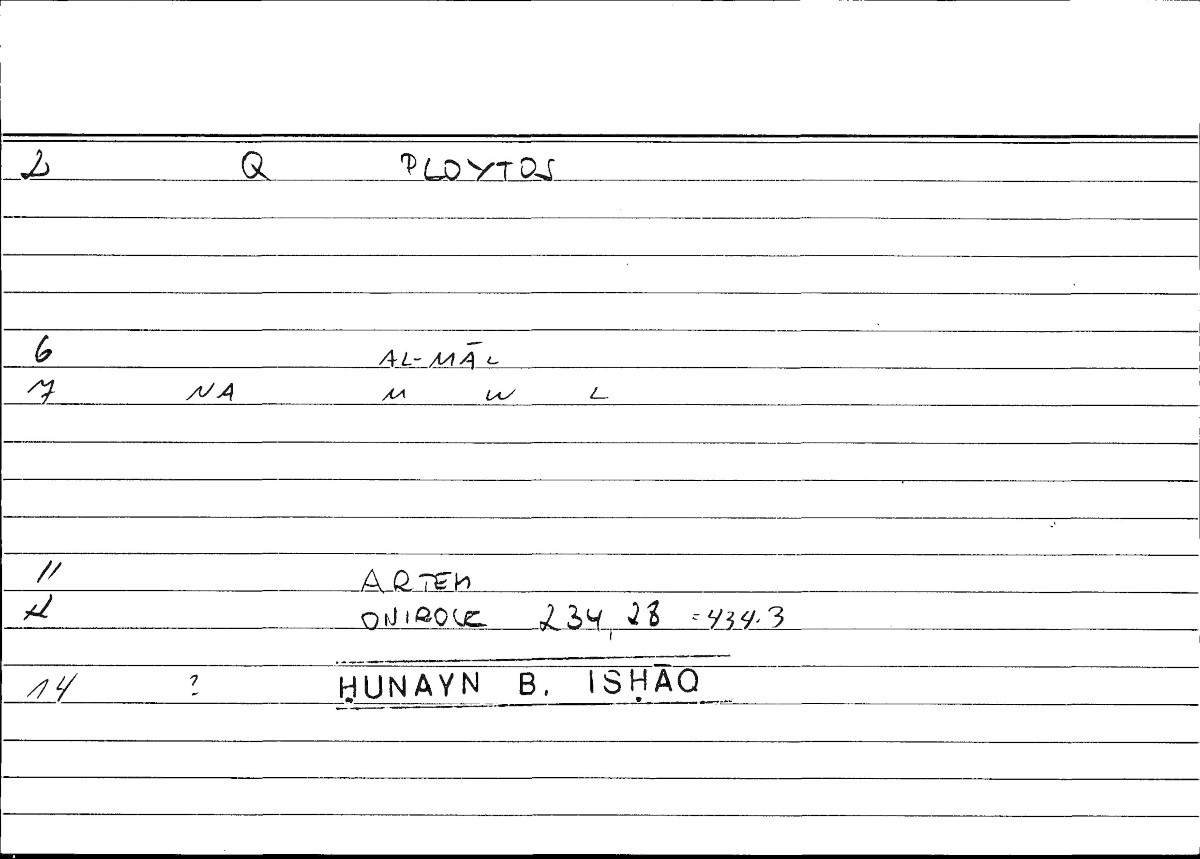 2 Q PLOYTOS
6 AL-MĀL
7 NA M W L
11 ARTEM
12 ONIROCR 234, 28 =434.3
14 ? ḤUNAYN B. ISḤĀQ